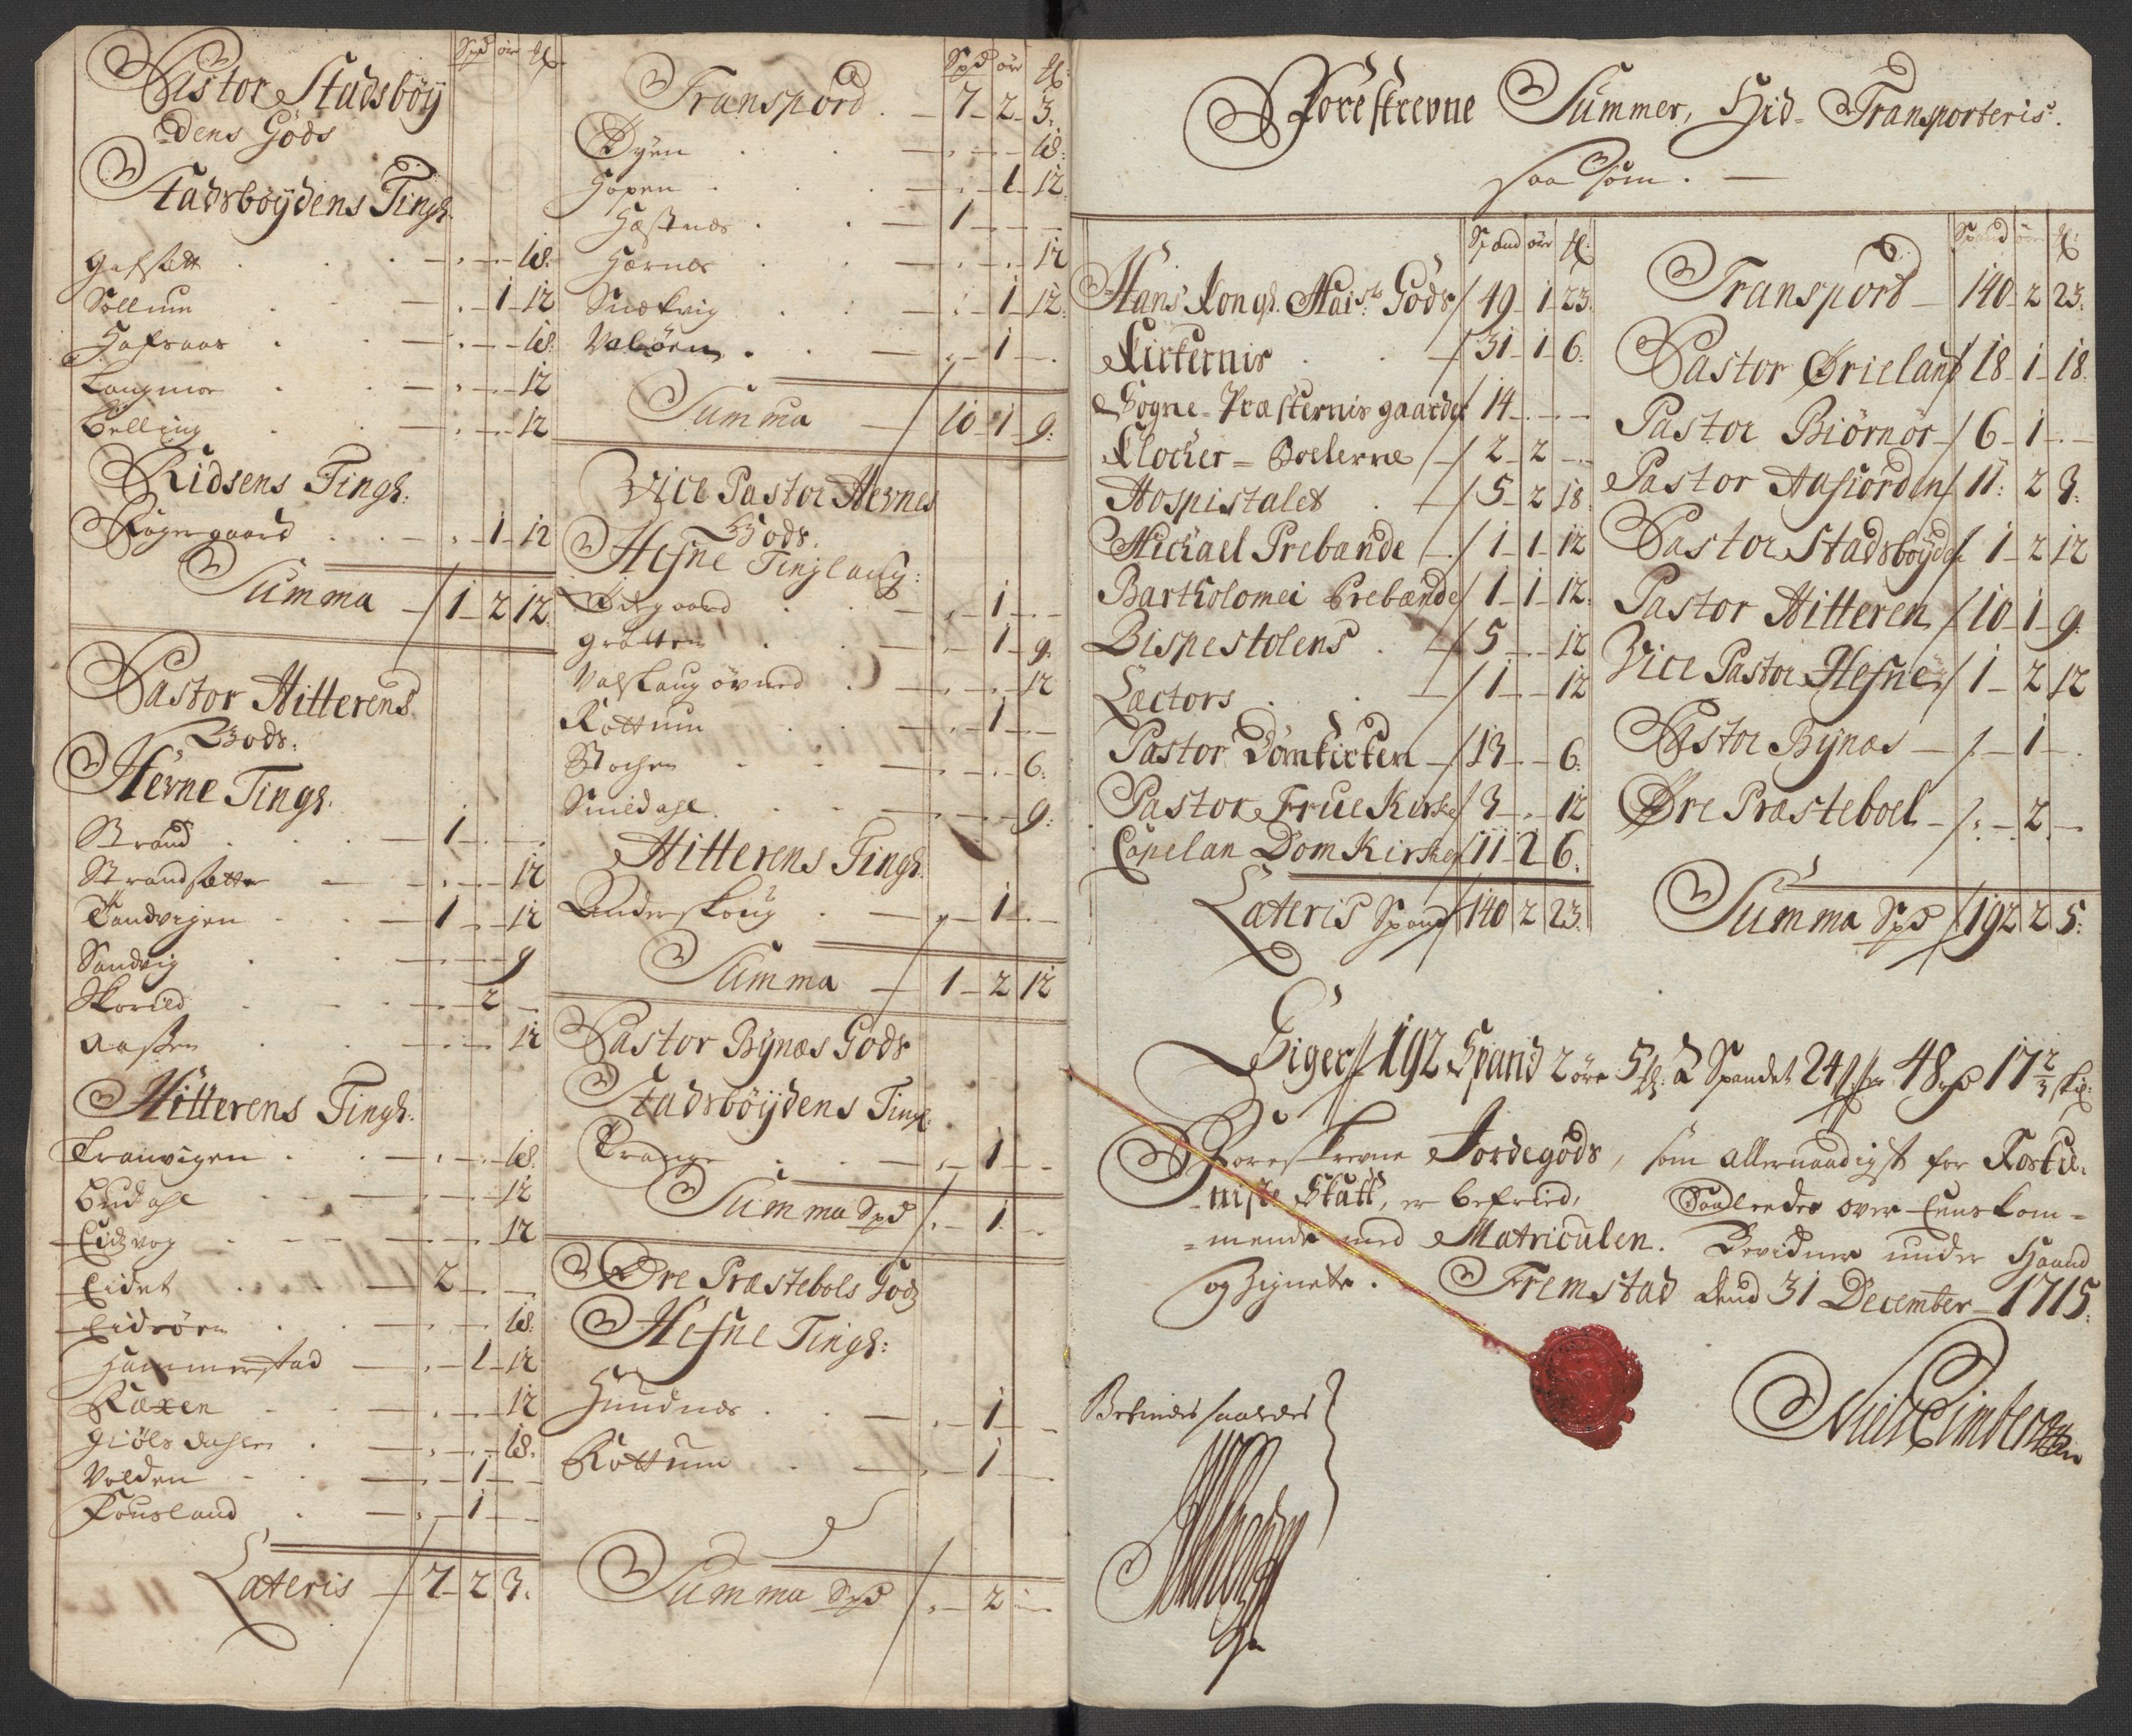 Spd øre ℔.
Pastor Stadsbøy
=dens Gods
Stadsbøydens Tingl:
Sollum . . 1 - 12
Hafsaas . . - 18.
Langmoe . . - 12
Belling . . - 12
Ridsens Tingl:
Røgergaard . . 1 - 12
Summa 1 - 2 12.
Pastor Hitterens
Gods.
Hevne Tingl.
Strand . . 1
Strandsætter - 12
Tandvigen . . 1 - 12
Sandvig . . - 9
Skorild . . 2
Aassen . . - 12
Hitterens Tingl.
Tranvigen . . - 18.
Buddahl . . - 12
Eidzvog . . - 12
Eidet . . 2
Eidsøren . . - 18.
Hammerstad - 1 - 12
Raxen . . - 12
Giølsdahlen . - 18.
Volden . . 1
Fousland . 1
Lateris 7 - 2 3.
Spd øre ℔
Transpord . 7 - 2 - 3.
Øyen . . - 18.
Hopen . . 1 - 12.
Hæstnes . . 1
Hærnes . . - 12
Snekvig . . 1 - 12.
Valøen . - 1
Summa 10 - 1 - 9.
Vice Pastor Hevnes
Gods.
Hefne Tinglaug:
Ødegaard . . 1
Grøtten . . 1 - 9.
Valslaug øvred . - 12
Rottum . . 1
Stochen . . - 6.
Smidahl . . - 9.
Hitterens Tingl.
Underskoug . 1
Summa - 1 - 2 12
Pastor Bynæs Gods
Stadsbøydens Tingl.
Prange . . 1
Summa Spd . - 1
Øre Præstebols Gods
Hefne Tingl:
Hundnes . . 1
Rottum . . 1
Summa Spd . - 2
Foreskrevne Summer, Hid-Transporteris.
saa som.
Spand øre ℔.
Hans Kongl. Maist: Gods 49 - 1 - 23.
Kirkernis . . 31 - 1 6.
Sogne-Præsternis gaarder 14
Klocker-Boelerne 2 - 2
Hospistalet . 5 - 2 18
Michael Prebande . 1 - 1 - 12
Bartholomei Prebænde 1 - 1 - 12.
Bispestolens . 5 - - 12
Lectors . . 1 - - 12
Pastor Domkirken 13 - - 6.
Pastor Frue Kirke 3 - - 12
Capelan Dom Kirken 11 - 2 6.
Lateris Spand 140 2 23.
Spand øre ℔.
Transport - 140 - 2 23.
Pastor Ørieland 18 - 1 - 18.
Pastor Biørnør 6 - 1
Pastor Aafiorden 11: 2 3.
Pastor Stadsbøyden 1 - 2 12
Pastor Hitteren 10 - 1 - 9.
Vice Pastor Hefne 1 - 2 12
Pastor Bynæs - 1
Øre Præsteboel - 2
Summa Spd 192 2 5.
Siger 192 Spand 2 øre 5 ℔. à Spandet 24 ß. er 48 rd 17 2/3 sk:
Foreskrevne Jordegods, som allernaadigst for Rostie-
=niste Skatt, er befried, Saaleedes over Eenskom=
=mende med Matriculen. Bevidner under Haand
og Zignete. Fremstad dend 31 December 1715.
Befindes saaledes